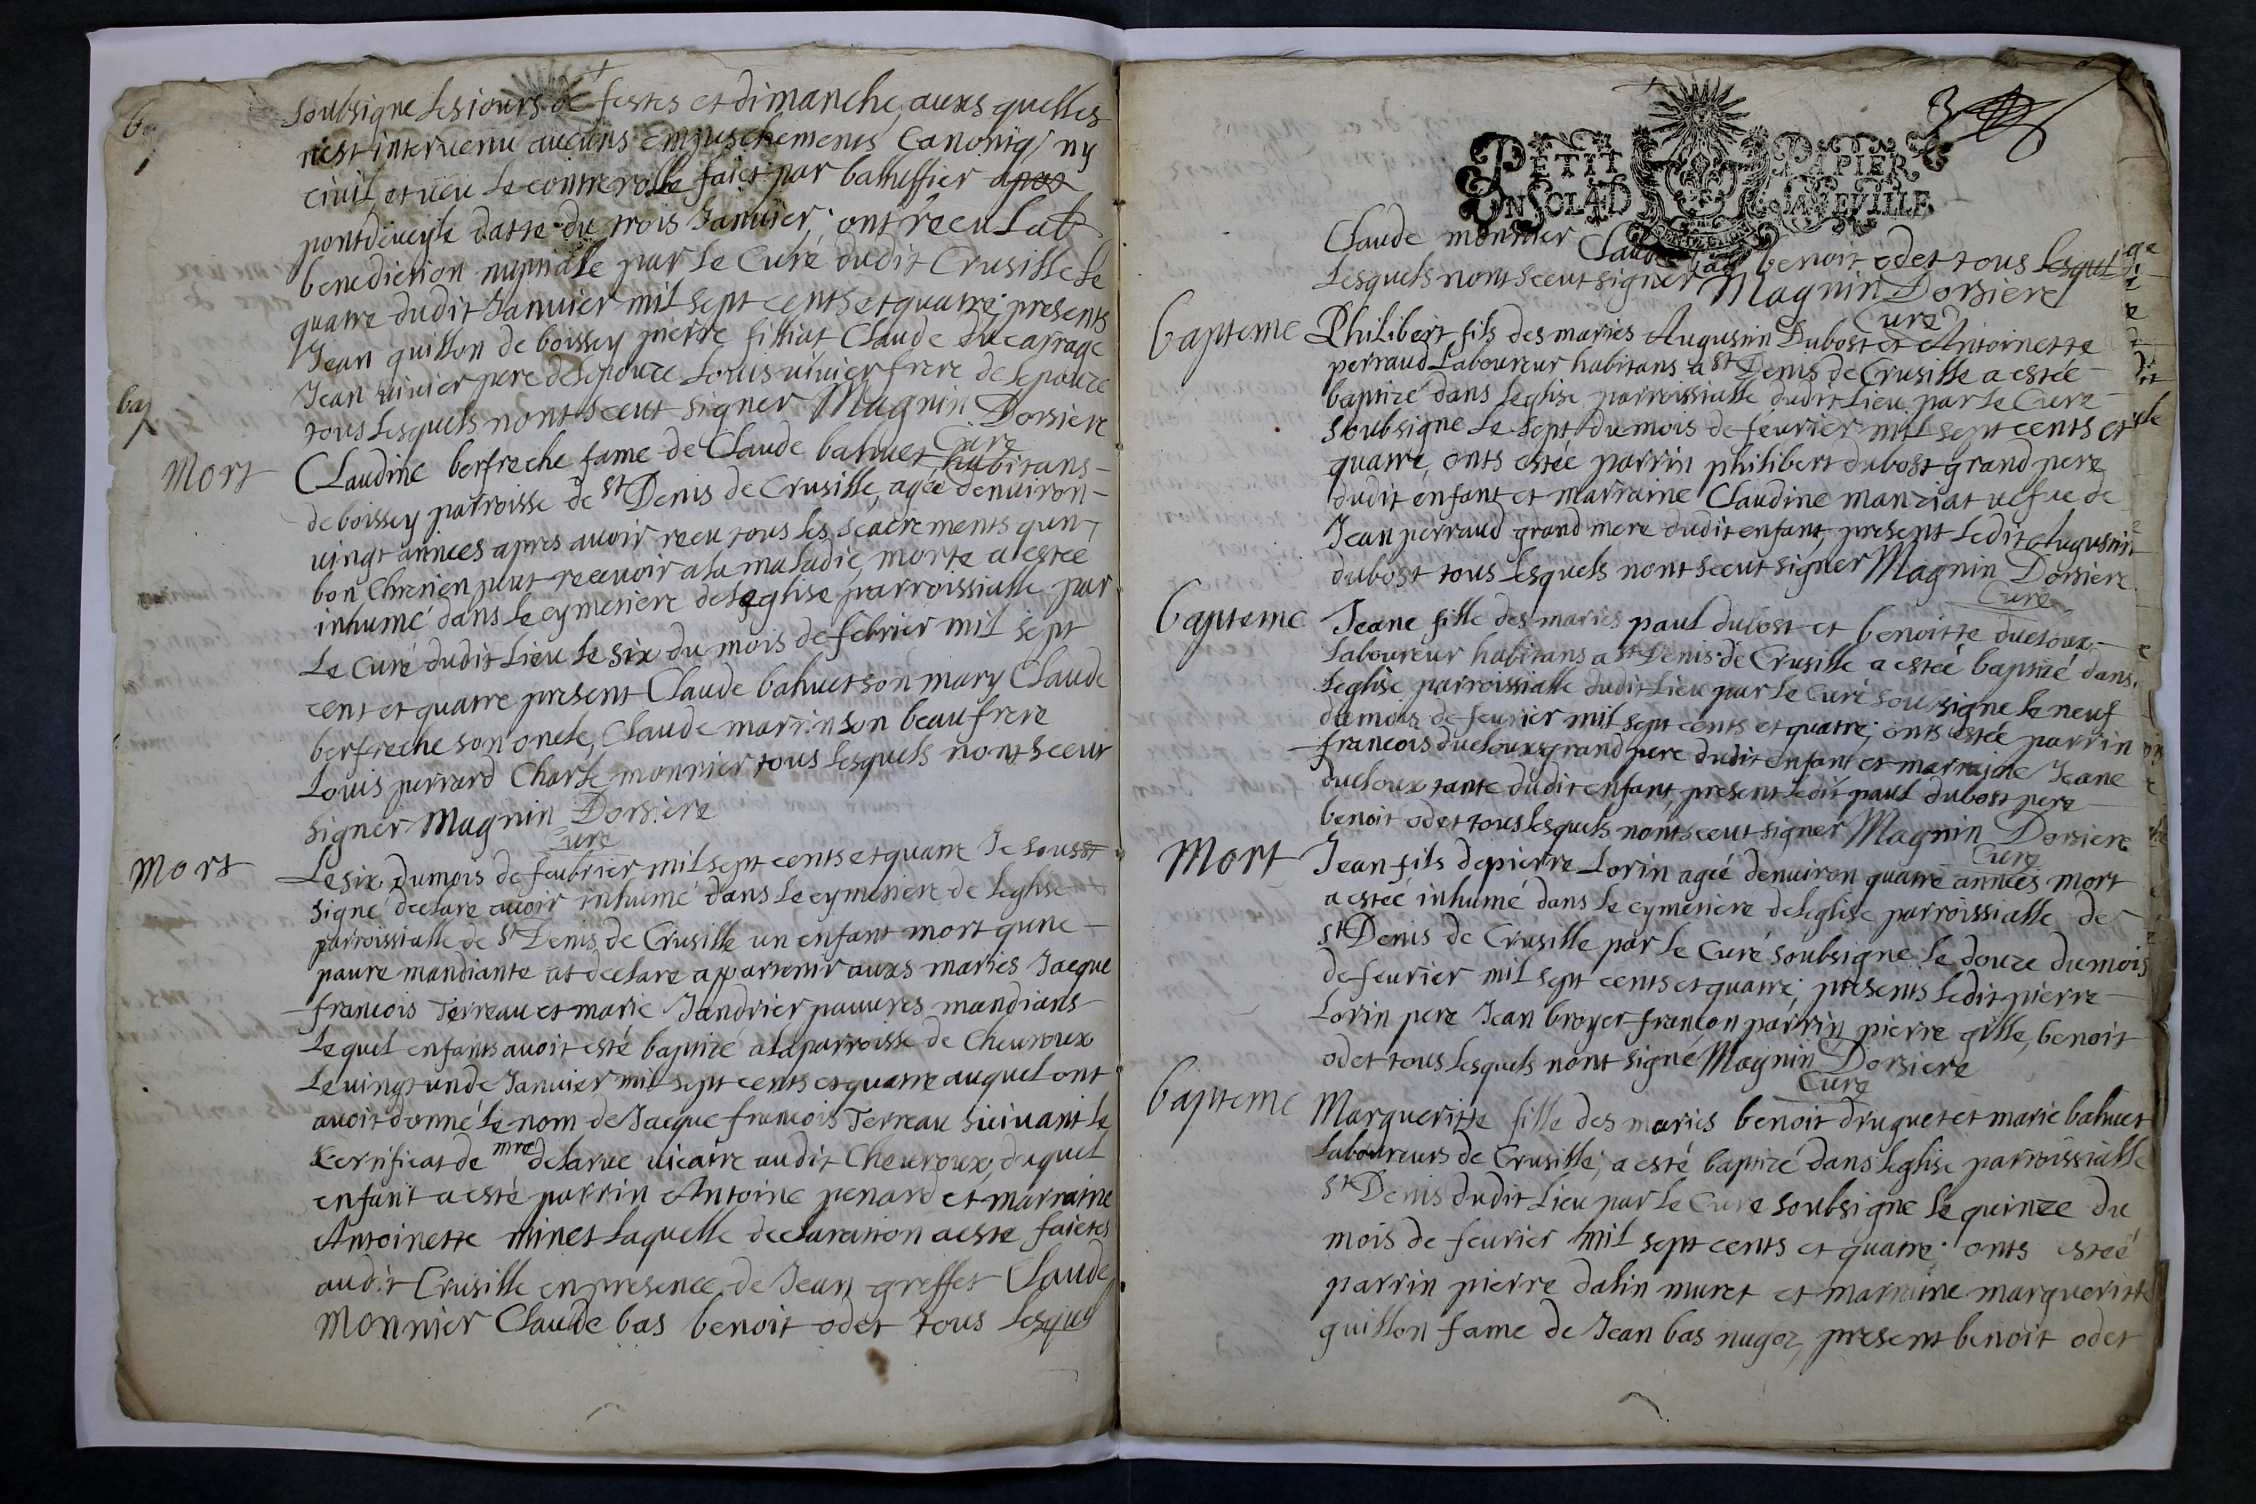 soubsigne les iours de festes et dimanche, auxs quelles
nest intervenu aucuns empeschements Canoniq ny
civil et veu le controlle faict par bahuffier a pos
pontdeveyle datte du trois Janvier, ont receu la b
benediction nuptialle par le Curé dudit Crusille le
quatre dudit Janvier mil sept cents et quatre; presents
Jean guillon de boissey pierre filliat Claude ducarrage
Jean vivier pere de lepouze Louis vivier frere de lepouze
tous lesquels nont sceut signer Magnin Dorsiere
Curé
Mort
Claudine berfreche fame de Claude bahuet, habitans
de boissey parroisse de st Denis de Crusille, agée denviron
vingt annees apres avoir receu tous les seacrements qun
bon Chretien peut recevoir a la maladie, morte a estée
inhumé dans le cymetiere de leglise parroissialle par
le Curé dudit Lieu le six du mois de febrier mil sept
cent et quatre present Claude bahuet son mary Claude
berfreche son oncle, Claude martin son beaufrere
Louis perrard Charle monnier tous lesquels nont sceut
signer Magnin Dorsiere
Curé
Mort
Le six du mois de feubrier mil sept cents et quatre Je soubst
signé declare avoir inhumé dans le cymetiere de leglise
parroissialle de st Denis de Crusille un enfant mort qune
paure mandiante at declare apartenir auxs mariés Jacque
francois Terreau et marie Jandrier pauvres mandians
Lequel enfants avoit esté baptizé a la parroisse de Chevroux
Le vingt un de Janvier mil sept cents et quatre auquel ont
avoit donné le nom de Jacque francois Terreau suivant le
Certificat de mre delarue vicaire audit Chevroux, duquel
enfant a esté parrin Antoine penard et marraine
Antoinette minet laquelle declaration a este faictes
audit Crusille en presence de Jean greffet Claude
Monnier Claude bas benoit odet tous lesquel
3
PETIT PAPIER
UN SOL 4 D LA FEVILLE
Claude monnier Claude bas benoit odet tous lesquel
Lesquels nont sceut signer Magnin Dorsiere
Curé
bapteme
Philibert fils des mariés Augustin Dubost et Antoinette
perraud Laboureur habitans a st Denis de Crusille a estée
baptizé dans leglise parroissialle dudit Lieu par le Curé
soubsigne le sept du mois de fevrier mil sept cents et
quatre, onts estée parrin philibert dubost grand pere
dudit enfant et marraine Claudine manziat vefue de
Jean perraud grand mere dudit enfant, present ledit Augustin
dubost tous lesquels nont sceut signer Magnin Dorsiere
Curé
bapteme
Jeane fille des mariés paul dubost et benoitte ducloux
Laboureur habitans a st Denis de Crusille a estée baptizé dans
leglise parroissialle dudit Lieu par le Curé sousigne le neuf
du mois de fevrier mil sept cents et quatre; onts estée parrin
francois ducloux grand pere dudit enfant et marraine Jeane
ducloux tante dudit enfant, present ledit paul dubost pere
benoit odet tous lesquels nont sceut signer Magnin Dorsiere
Curé
Mort
Jean fils de pierre Lorin agée denviron quatre annees mort
a estée inhumé dans le cymetiere de leglise parroissialle de
st Denis de Crusille par le Curé soubsigne le douze du mois
de fevrier mil sept cents et quatre; presents ledit pierre
Lorin pere Jean broyer francon parrin pierre gille, benoit
odet tous lesquels nont signé Magnin Dorsiere
Curé
bapteme
Margueritte fille des mariés benoit druguet et marie bahuet
Laboureurs de Crusille; a esté baptizé dans leglise parroissialle
st Denis dudit Lieu par le Curé soubsigne le quinze du
mois de fevrier mil sept cents et quatre; onts estée
parrin pierre dalin muret et marraine margueritte
guillon fame de Jean bas nugoz, present benoit odet